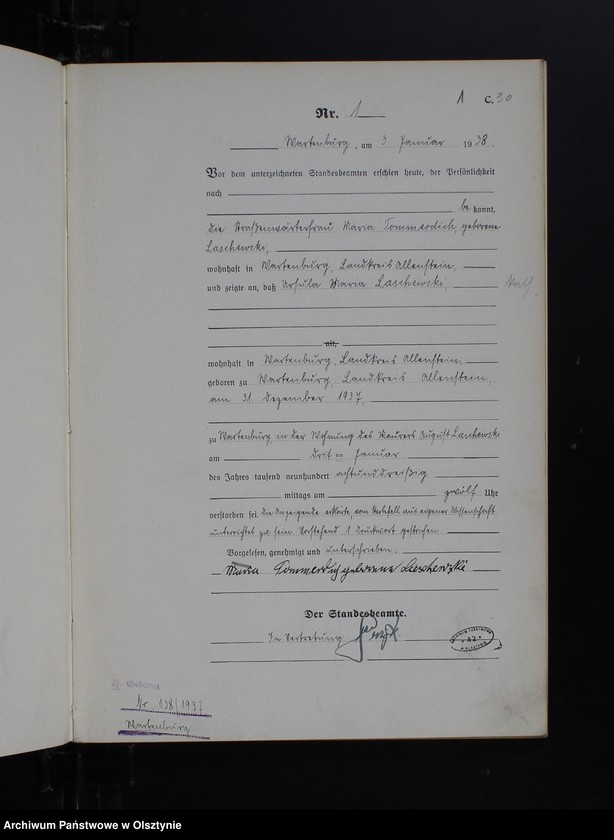 1 C. 30
Nr. 1
Wartenburg, am 3. Januar 1938.
Vor dem unterzeichneten Standesbeamten erschien heute, der Persönlichkeit
nach
be kannt,
die Straßenwärterfrau Maria Tommerdich, geborene
Laschewski,
wohnhaft in Wartenburg, Landkreis Allenstein,
und zeigte an, daß Ursula Maria Laschewski,
alt,
wohnhaft in Wartenburg, Landkreis Allenstein,
geboren zu Wartenburg, Landkreis Allenstein,
am 31. Dezember 1937,
zu Wartenburg, in der Wohnung des Maurers August Laschewski
am dritten Januar
des Jahres tausend neunhundert achtunddreißig
mittags um zwölf Uhr
verstorben sei. Die Anzeigende erklärte, vom Sterbefall aus eigener Wissenschaft
unterrichtet zu sein. Vorstehend 1 Druckwort gestrichen.
Vorgelesen, genehmigt und unterschrieben.
Maria Tommerdich geborene Laschewski
Der Standesbeamte.
In Vertretung
Nr 138/1937
Wartenburg
Archiwum Państwowe w Olsztynie